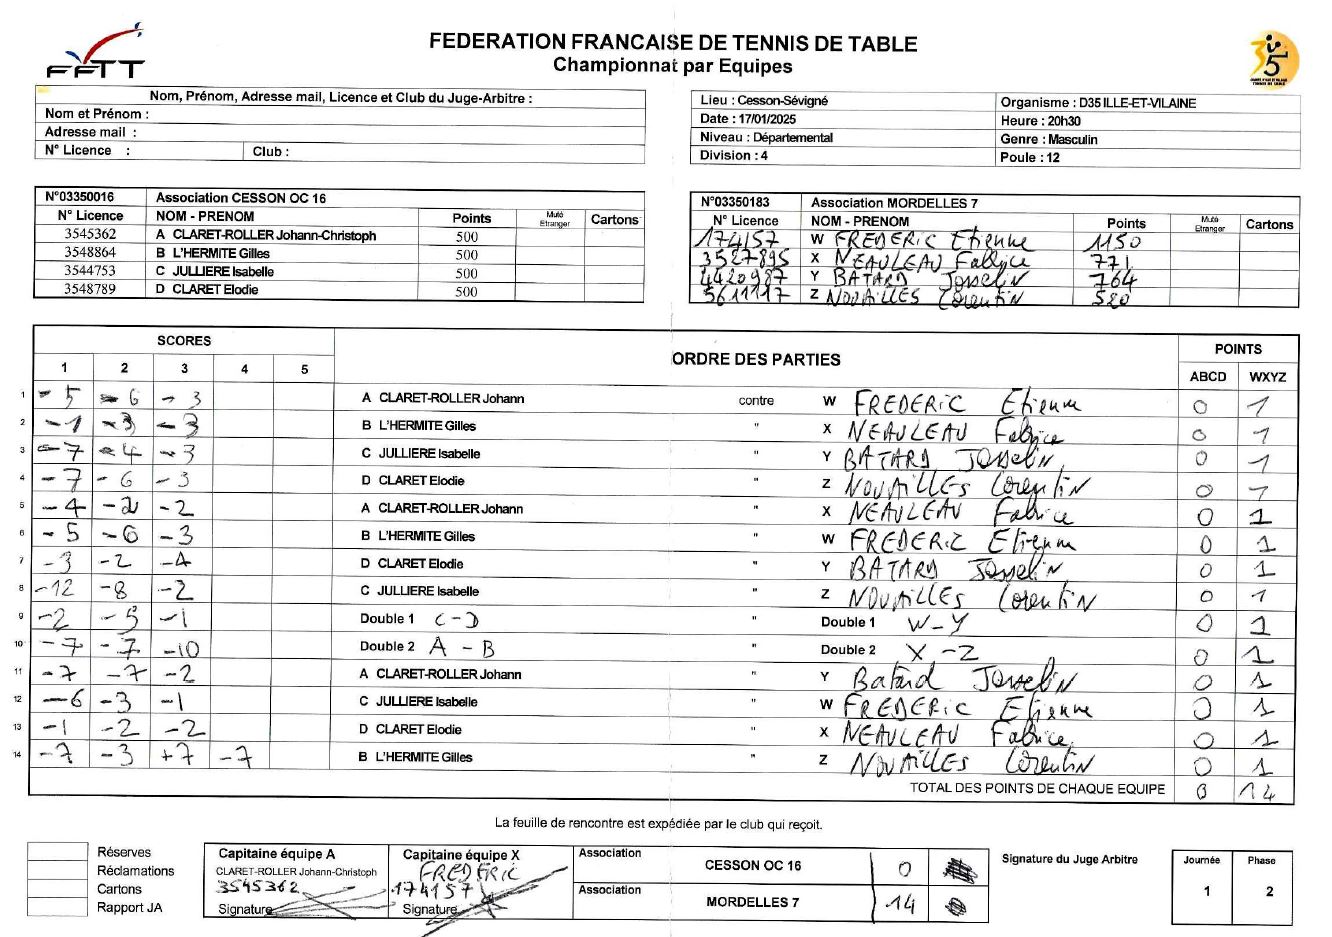 FEDERATION FRANCAISE DE TENNIS DE TABLE
Championnat par Equipes
FFTT
35
Nom, Prénom, Adresse mail, Licence et Club du Juge-Arbitre :
Nom et Prénom :
Adresse mail :
N° Licence : Club :
Lieu : Cesson-Sévigné Organisme : D35 ILLE-ET-VILAINE
Date : 17/01/2025 Heure : 20h30
Niveau : Départemental Genre : Masculin
Division : 4 Poule : 12
N°03350016 Association CESSON OC 16
N° Licence NOM - PRENOM Points Muté Etranger Cartons
3545362 A CLARET-ROLLER Johann-Christoph 500
3548864 B L'HERMITE Gilles 500
3544753 C JULLIERE Isabelle 500
3548789 D CLARET Elodie 500
N°03350183 Association MORDELLES 7
N° Licence NOM - PRENOM Points Muté Etranger Cartons
174157 W FREDERIC Etienne 1150
3527895 X NEAULEAU Fabrice 771
4420987 Y BATARD Josselin 764
5611117 Z NOUAILLES Corentin 520
SCORES ORDRE DES PARTIES POINTS
1 2 3 4 5 ABCD WXYZ
1 -5 -6 -3 A CLARET-ROLLER Johann contre W FREDERIC Etienne 0 1
2 -1 -3 -3 B L'HERMITE Gilles " X NEAULEAU Fabrice 0 1
3 -7 -4 -3 C JULLIERE Isabelle " Y BATARD Josselin 0 1
4 -7 -6 -3 D CLARET Elodie " Z NOUAILLES Corentin 0 1
5 -4 -2 -2 A CLARET-ROLLER Johann " X NEAULEAU Fabrice 0 1
6 -5 -6 -3 B L'HERMITE Gilles " W FREDERIC Etienne 0 1
7 -3 -2 -4 D CLARET Elodie " Y BATARD Josselin 0 1
8 -12 -8 -2 C JULLIERE Isabelle " Z NOUAILLES Corentin 0 1
9 -2 -5 -1 Double 1 C-D " Double 1 W-Y 0 1
10 -7 -7 -10 Double 2 A - B " Double 2 X-Z 0 1
11 -7 -7 -2 A CLARET-ROLLER Johann " Y Batard Josselin 0 1
12 -6 -3 -1 C JULLIERE Isabelle " W FREDERIC Etienne 0 1
13 -1 -2 -2 D CLARET Elodie " X NEAULEAU Fabrice 0 1
14 -7 -3 +7 -7 B L'HERMITE Gilles " Z NOUAILLES Corentin 0 1
TOTAL DES POINTS DE CHAQUE EQUIPE 0 14
La feuille de rencontre est expédiée par le club qui reçoit.
Réserves
Réclamations
Cartons
Rapport JA
Capitaine équipe A
CLARET-ROLLER Johann-Christoph
3545362
Signature
Capitaine équipe X
FREDERIC
174157
Signature
Association CESSON OC 16 0
Association MORDELLES 7 14
Signature du Juge Arbitre
Journée Phase
1 2